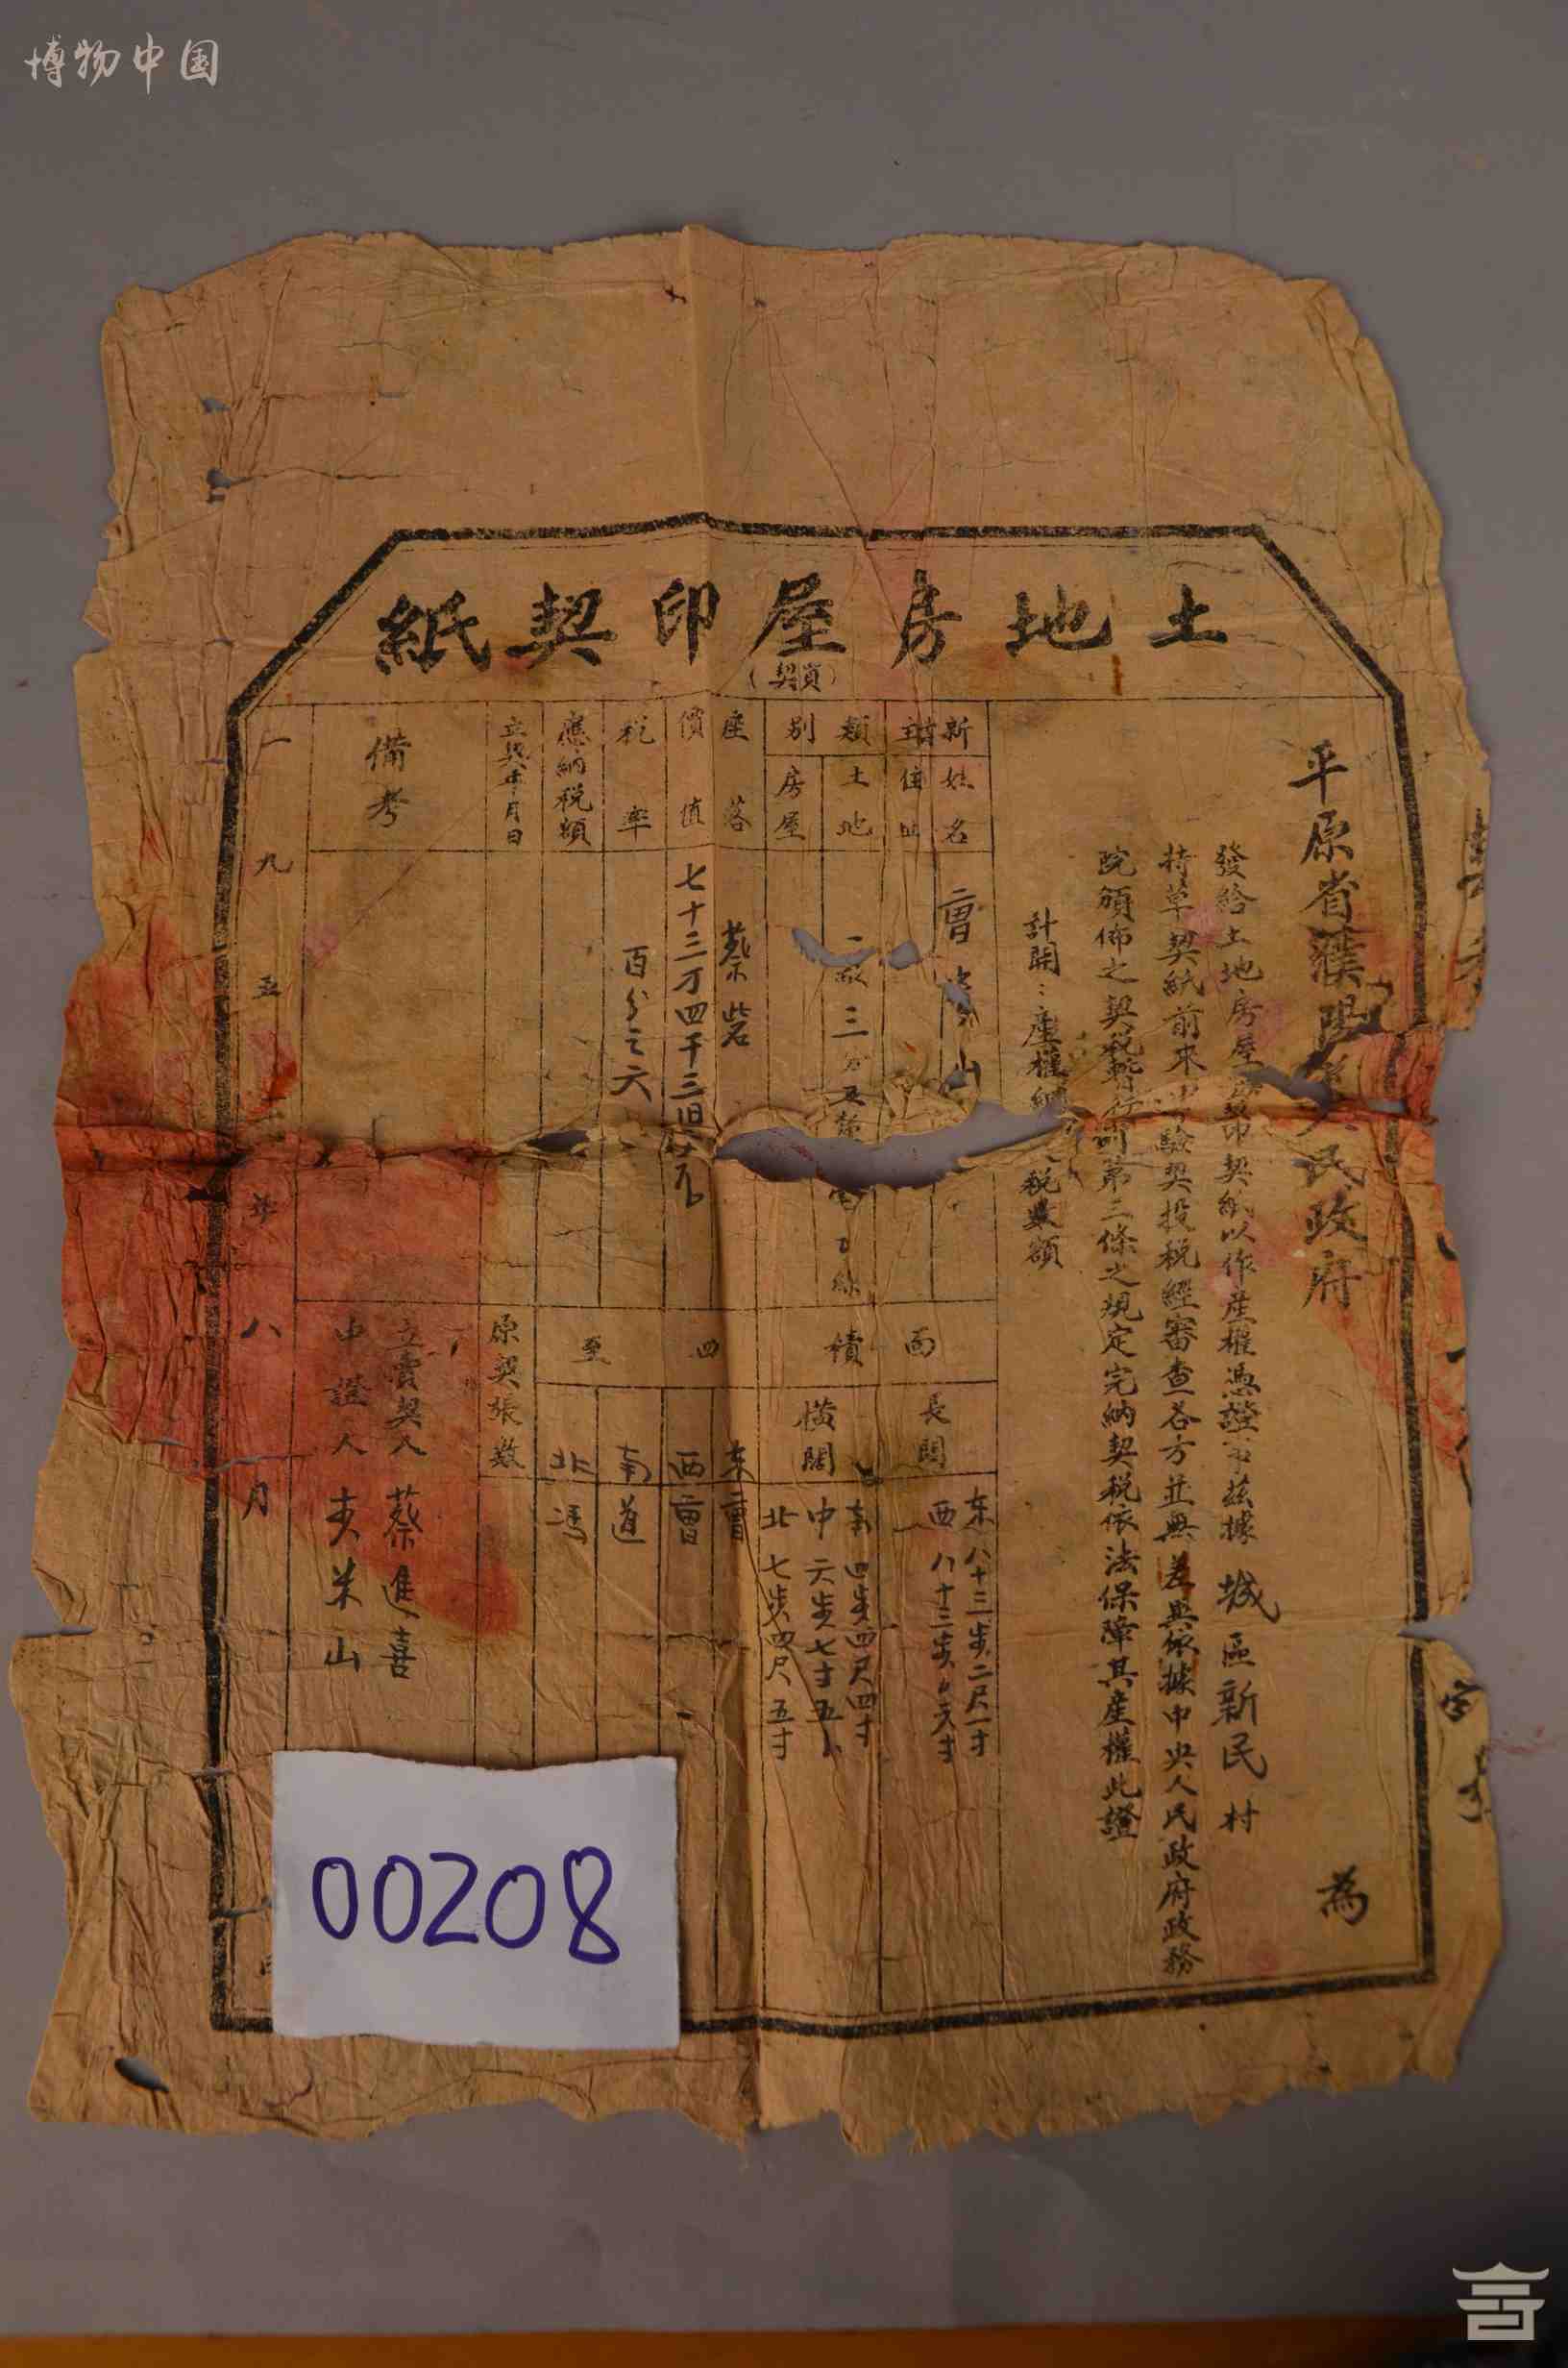 博物中国
土地房屋印契紙
(買契)
平原省濮陽 民政府 為
發給土地房屋 印契紙以作產權憑證 茲據 城區新民村
持草契紙前來申 驗契投稅經審查各方並無差異依據中央人民政府政務
院頒佈之契稅暫行 第三條之規定完納契稅依法保障其產權此證
計開:產權 稅數額
新 主
姓名 曹 山
住址
類別
土地 三分五
房屋
座落 蔡砦
價值 七十三万四千三百 元
稅率 百分之六
應納稅額
立契年月日
備考
面積
長闊
东八十三步二尺一寸
西八十三步
橫闊
南四步四尺四寸
中六步七寸五
北七步四尺五寸
四至
东曹
西曹
南道
北馮
原契張數
立賣契人 蔡進喜
中證人 山
一九五 年八月
00208